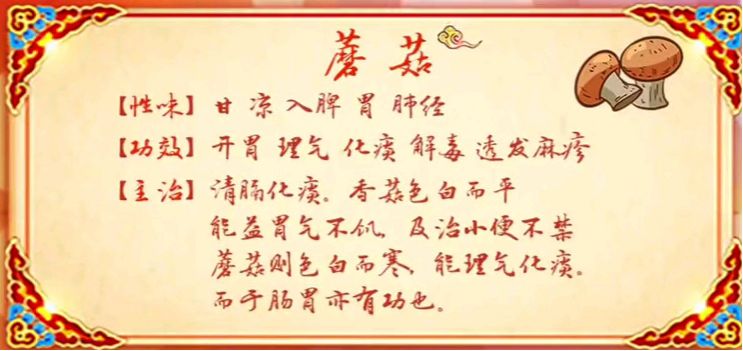 蘑菇
【性味】甘 凉 入脾 胃 肺经
【功效】开胃 理气 化痰 解毒 透发麻疹
【主治】清肠化痰。香菇色白而平
能益胃气不饥,及治小便不禁
蘑菇则色白而寒,能理气化痰。
而于肠胃亦有功也。